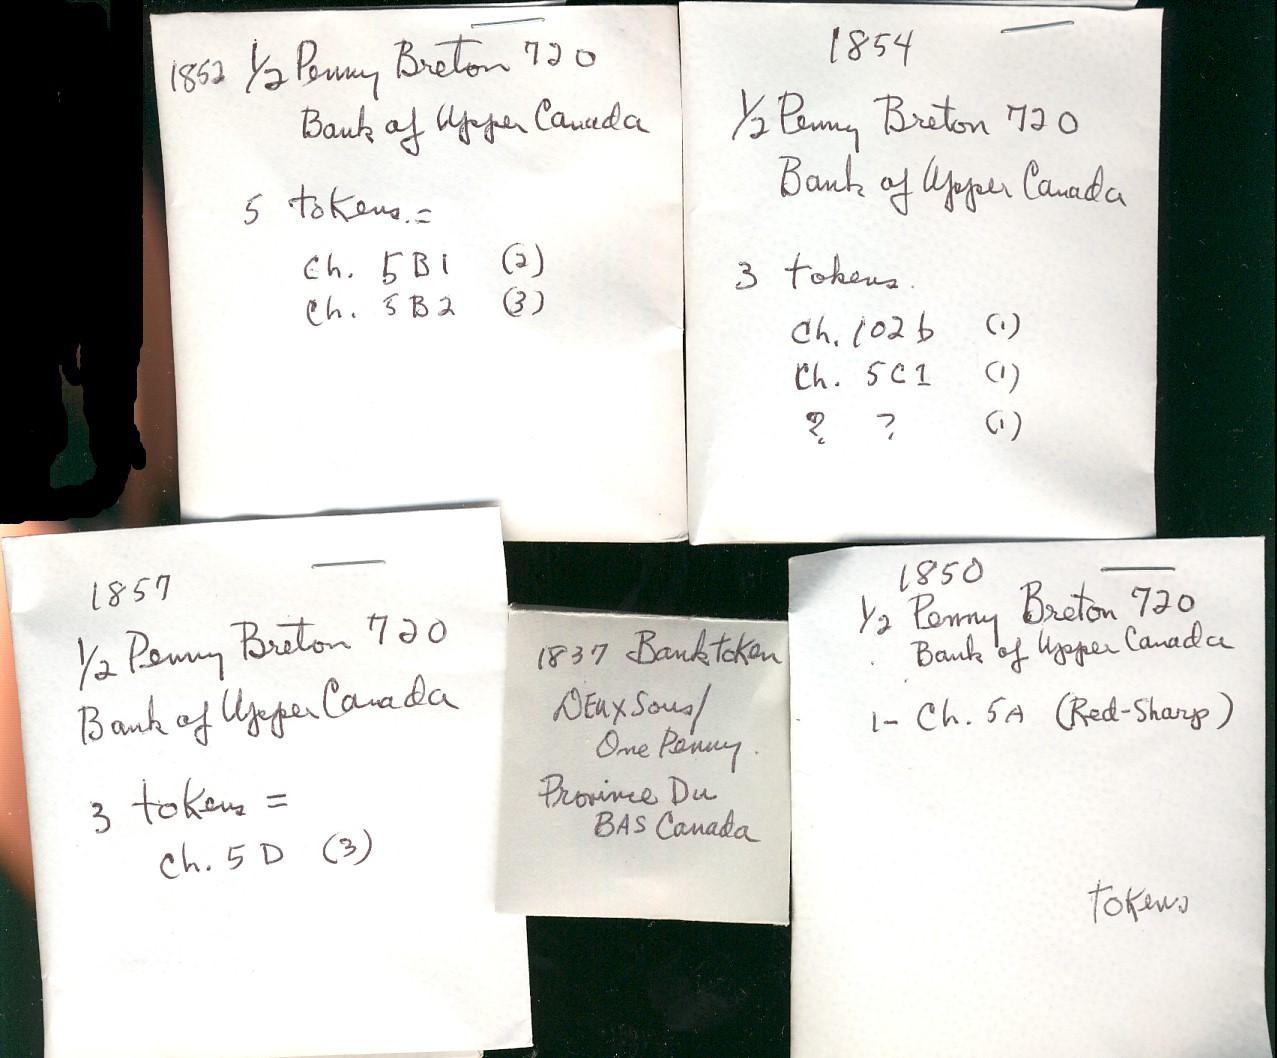 1852 1/2 Penny Breton 720
Bank of Upper Canada
5 tokens. =
Ch. 5B1 (2)
Ch. 5B2 (3)
1854
1/2 Penny Breton 720
Bank of Upper Canada
3 tokens.
Ch. 102b (1)
Ch. 5C1 (1)
? ? (1)
1857
1/2 Penny Breton 720
Bank of Upper Canada
3 tokens =
Ch. 5D (3)
1837 Bank token
Deux Sous/
One Penny.
Province Du
BAS Canada
1850
1/2 Penny Breton 720
Bank of Upper Canada
1- Ch. 5A (Red-Sharp)
tokens